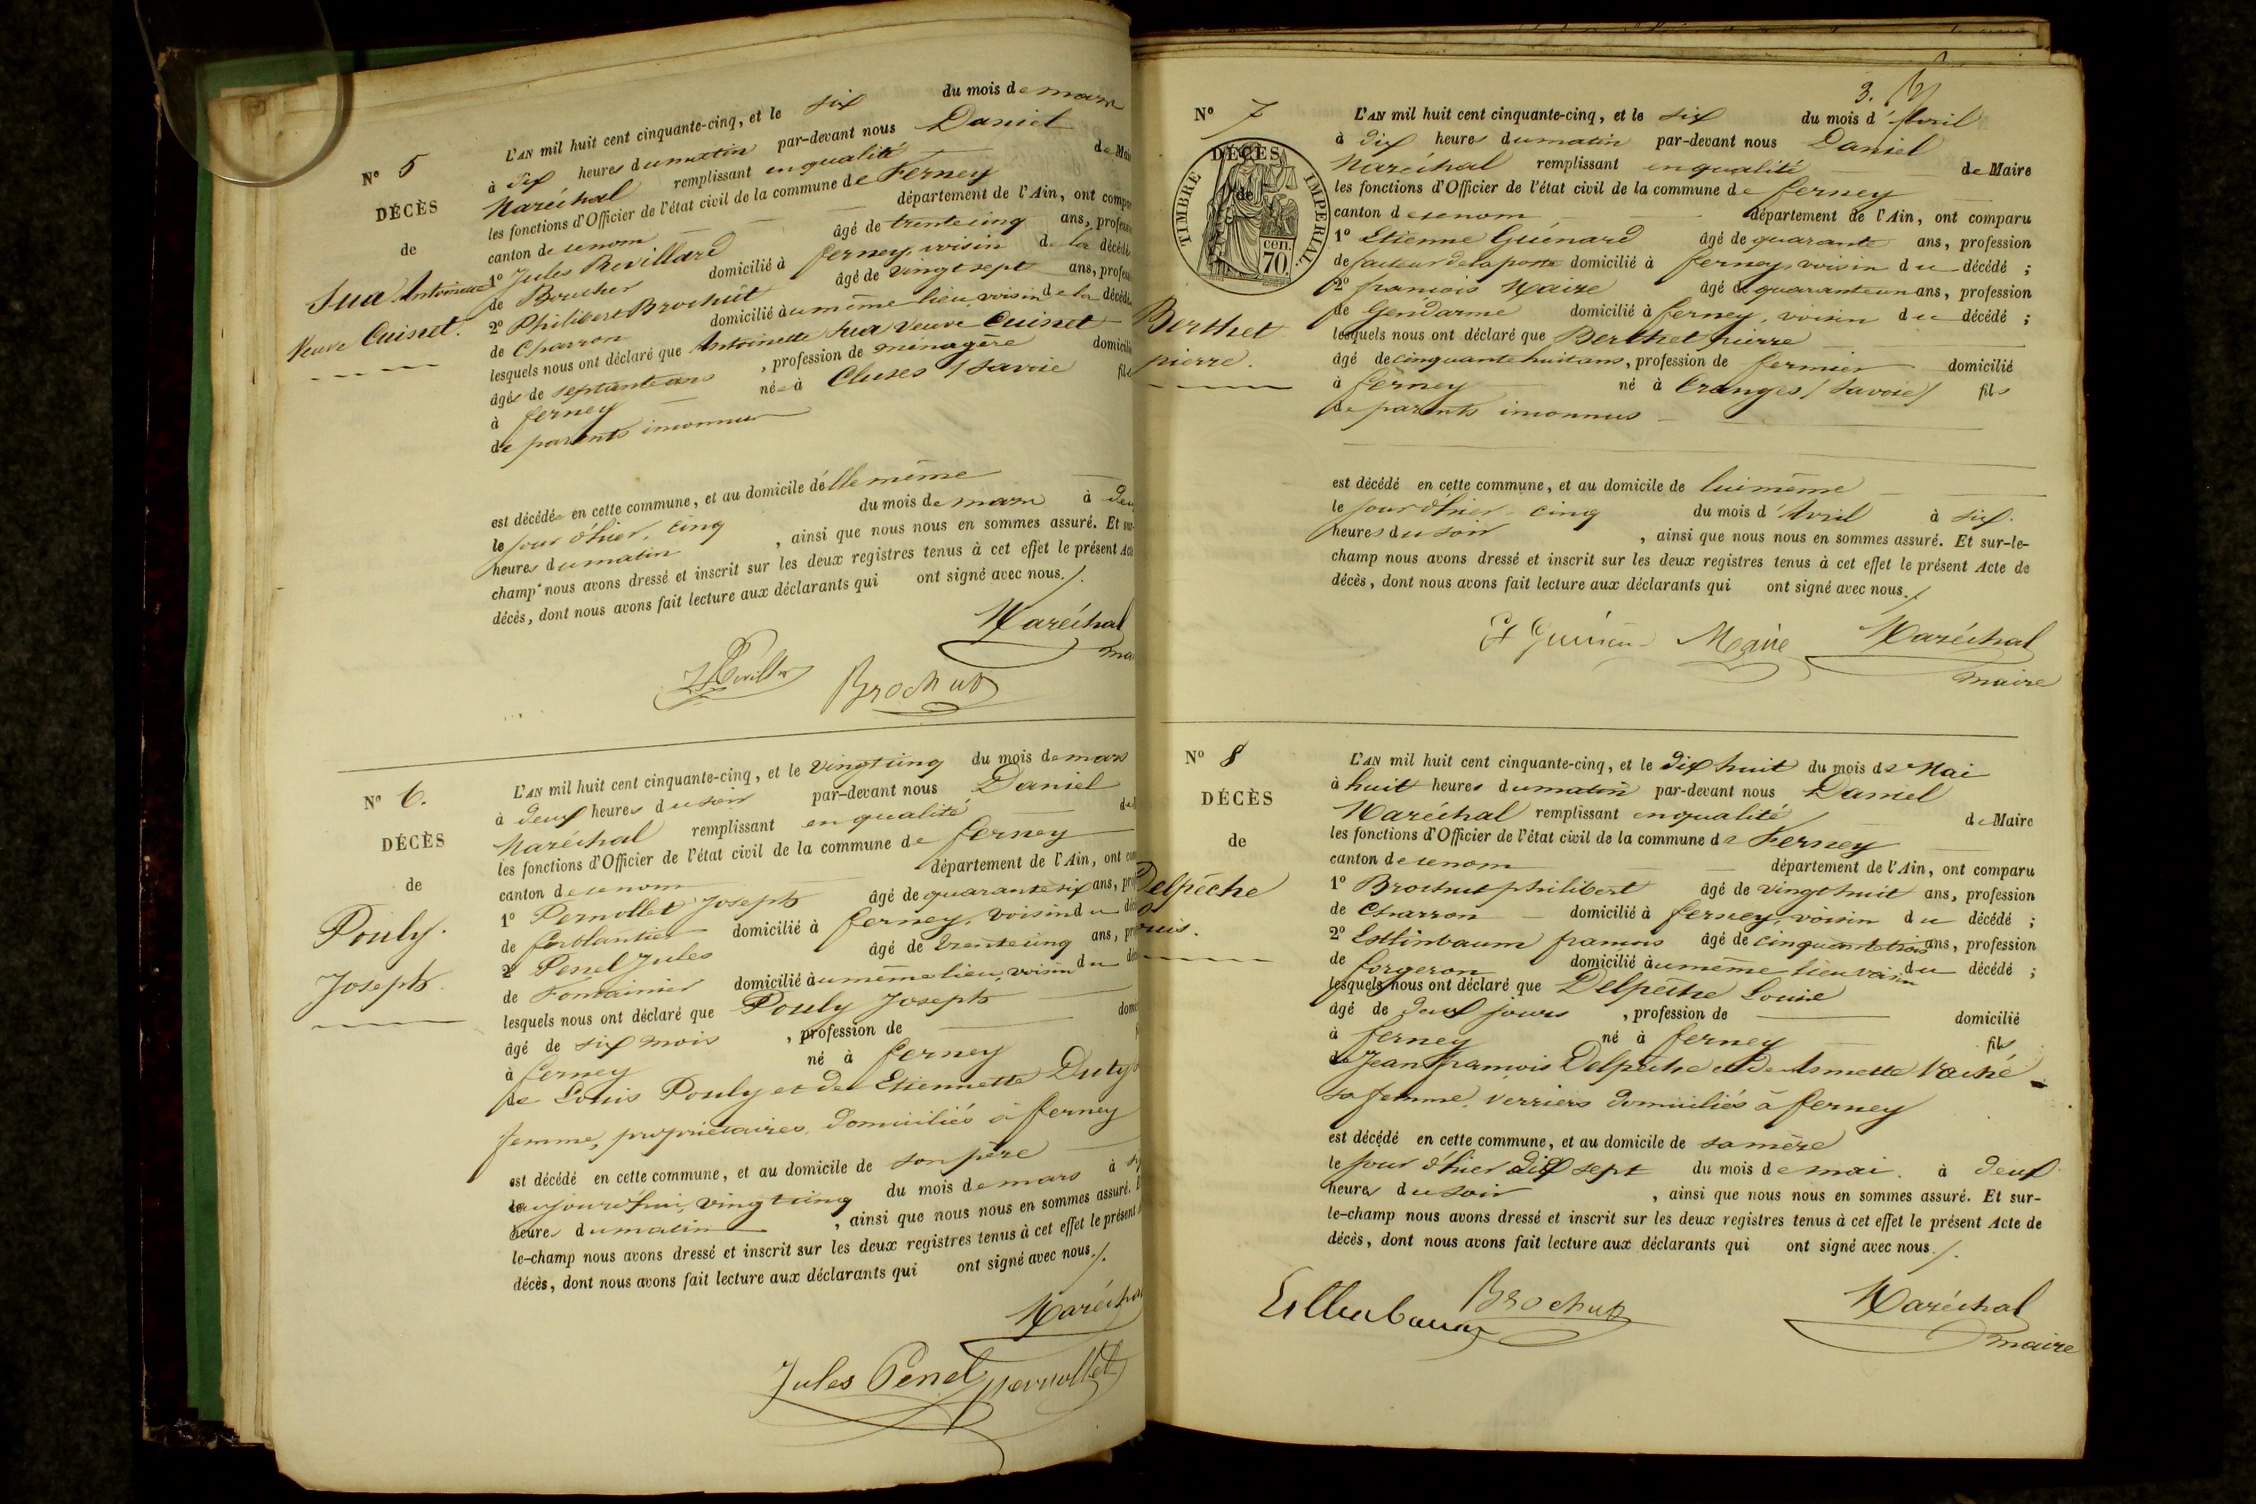 N° 5
DÉCÈS
de
Sua Antoinette
Veuve Cuisnet.
L'AN mil huit cent cinquante-cinq, et le six du mois de mars
à dix heures du matin par-devant nous Daniel
Maréchal remplissant en qualité de Mai
les fonctions d'Officier de l'état civil de la commune de Ferney
canton de ce nom département de l'Ain, ont compa
1° Jules Revillard âgé de trente cinq ans, profess
de Boucher domicilié à ferney, voisin de la décédé
2° Philibert Brochut âgé de vingt sept ans, profes
de Charron domicilié au même lieu, voisin de la décédé
lesquels nous ont déclaré que Antoinette Sua Veuve Cuisnet
âgée de septante ans, profession de ménagère domicilié
à ferney née à Cluses / Savoie fille
de parents inconnus
est décédée en cette commune, et au domicile d'elle même
le jour d'hier, cinq du mois de mars à deux
heures du matin, ainsi que nous nous en sommes assuré. Et sur-
champ nous avons dressé et inscrit sur les deux registres tenus à cet effet le présent Acte
décès, dont nous avons fait lecture aux déclarants qui ont signé avec nous./.
Maréchal
Brochut
N° 6.
DÉCÈS
de
Pouly.
Joseph.
L'AN mil huit cent cinquante-cinq, et le vingt cinq du mois de mars
à deux heures du soir par-devant nous Daniel
Maréchal remplissant en qualité de
les fonctions d'Officier de l'état civil de la commune de ferney
canton de ce nom département de l'Ain, ont com
1° Pernollet Joseph âgé de quarante six ans, pro
de ferblantier domicilié à ferney, voisin du déc
2° Penel Jules âgé de trente cinq ans, pro
de Fontainier domicilié au même lieu, voisin du déc
lesquels nous ont déclaré que Pouly Joseph
âgé de six mois, profession de domi
à ferney né à ferney f
de Louis Pouly et de Etiennette Duty
femme, propriétaires domiciliés à ferney
est décédé en cette commune, et au domicile de son père
le aujourd'hui, vingt cinq du mois de mars à
heures du matin, ainsi que nous nous en sommes assuré. E
le-champ nous avons dressé et inscrit sur les deux registres tenus à cet effet le présent
décès, dont nous avons fait lecture aux déclarants qui ont signé avec nous./.
Maréchal
Jules Penel Pernollet
3.
N° 7
TIMBRE IMPERIAL
DÉCÈS
de
70 cen.
Berthet
pierre.
L'AN mil huit cent cinquante-cinq, et le six du mois d'Avril
à dix heures du matin par-devant nous Daniel
Maréchal remplissant en qualité de Maire
les fonctions d'Officier de l'état civil de la commune de ferney
canton de ce nom département de l'Ain, ont comparu
1° Etienne Guénard âgé de quarante ans, profession
de facteur de la poste domicilié à ferney, voisin du décédé ;
2° francois Maire âgé de quarante un ans, profession
de Gendarme domicilié à ferney, voisin du décédé ;
lesquels nous ont déclaré que Berthet pierre
âgé de cinquante huit ans, profession de fermier domicilié
à ferney né à Cranges / Savoie / fils
de parents inconnus
est décédé en cette commune, et au domicile de lui même
le jour d'hier cinq du mois d'Avril à six.
heures du soir, ainsi que nous nous en sommes assuré. Et sur-le-
champ nous avons dressé et inscrit sur les deux registres tenus à cet effet le présent Acte de
décès, dont nous avons fait lecture aux déclarants qui ont signé avec nous./.
Maire Maréchal
maire
N° 8
DÉCÈS
de
Delpêche
Louis.
L'AN mil huit cent cinquante-cinq, et le dix huit du mois de Mai
à huit heures du matin par-devant nous Daniel
Maréchal remplissant en qualité de Maire
les fonctions d'Officier de l'état civil de la commune de Ferney
canton de ce nom département de l'Ain, ont comparu
1° Brochut philibert âgé de vingt huit ans, profession
de Charron domicilié à ferney, voisin du décédé ;
2° Estlinbaum francois âgé de cinquante trois ans, profession
de forgeron domicilié au même lieu voisin du décédé ;
lesquels nous ont déclaré que Delpêche Louis
âgé de deux jours, profession de domicilié
à ferney né à ferney fils
de Jean francois Delpêche et de Asmette Vaché
sa femme, verriers domiciliés à ferney
est décédé en cette commune, et au domicile de sa mère
le jour d'hier dix sept du mois de mai. à deux
heures du soir, ainsi que nous nous en sommes assuré. Et sur-
le-champ nous avons dressé et inscrit sur les deux registres tenus à cet effet le présent Acte de
décès, dont nous avons fait lecture aux déclarants qui ont signé avec nous./.
Brochut Maréchal
maire